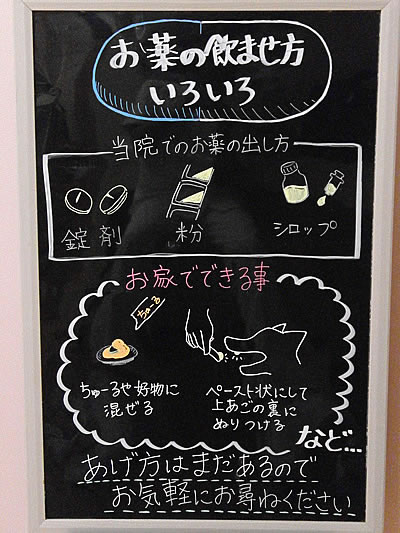 お薬の飲ませ方
いろいろ
当院でのお薬の出し方
錠剤
粉
シロップ
お家でできる事
ちゅ〜る
ちゅーるや好物に
混ぜる
ペースト状にして
上あごの裏に
ぬりつける
など…
あげ方はまだあるので
お気軽にお尋ねください